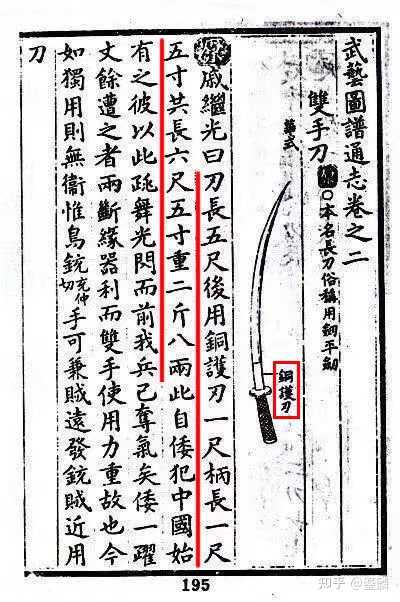 武藝圖譜通志卷之二
雙手刀 ○本名長刀俗稱用劒平劒
華式
銅護刃
戚繼光曰刀長五尺後用銅護刃一尺柄長一尺
五寸共長六尺五寸重二斤八兩此自倭犯中國始
有之彼以此跳舞光閃而前我兵已奪氣矣倭一躍
丈餘遭之者兩斷緣器利而雙手使用力重故也今
如獨用則無衞惟鳥銃充仲切手可兼賊遠發銃賊近用
刀
195
知乎